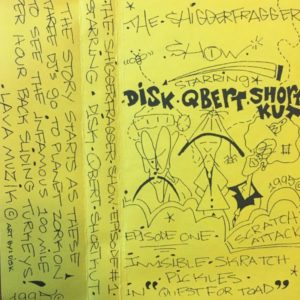 THE STORY STARTS AS THESE
THREE DJ'S GO TO PLANT ZORXON
TO SEE THE INFAMOUS 100 MILE
PER HOUR BACK SLIDING TURKEYS!
JAVA MUZIK © ART BY DISK
THE SHIGGERFRAGGER SHOW EPISODE #1
STARRING DISK QBERT SHORTKUT
THE SHIGGERFRAGGER
SHOW
STARRING
DISK QBERT SHORT
KUT
1995
SCRATCH
ATTACK
EPISODE ONE
INVISIBLE SKRATCH
PICKLES
IN "QUEST FOR TOAD"